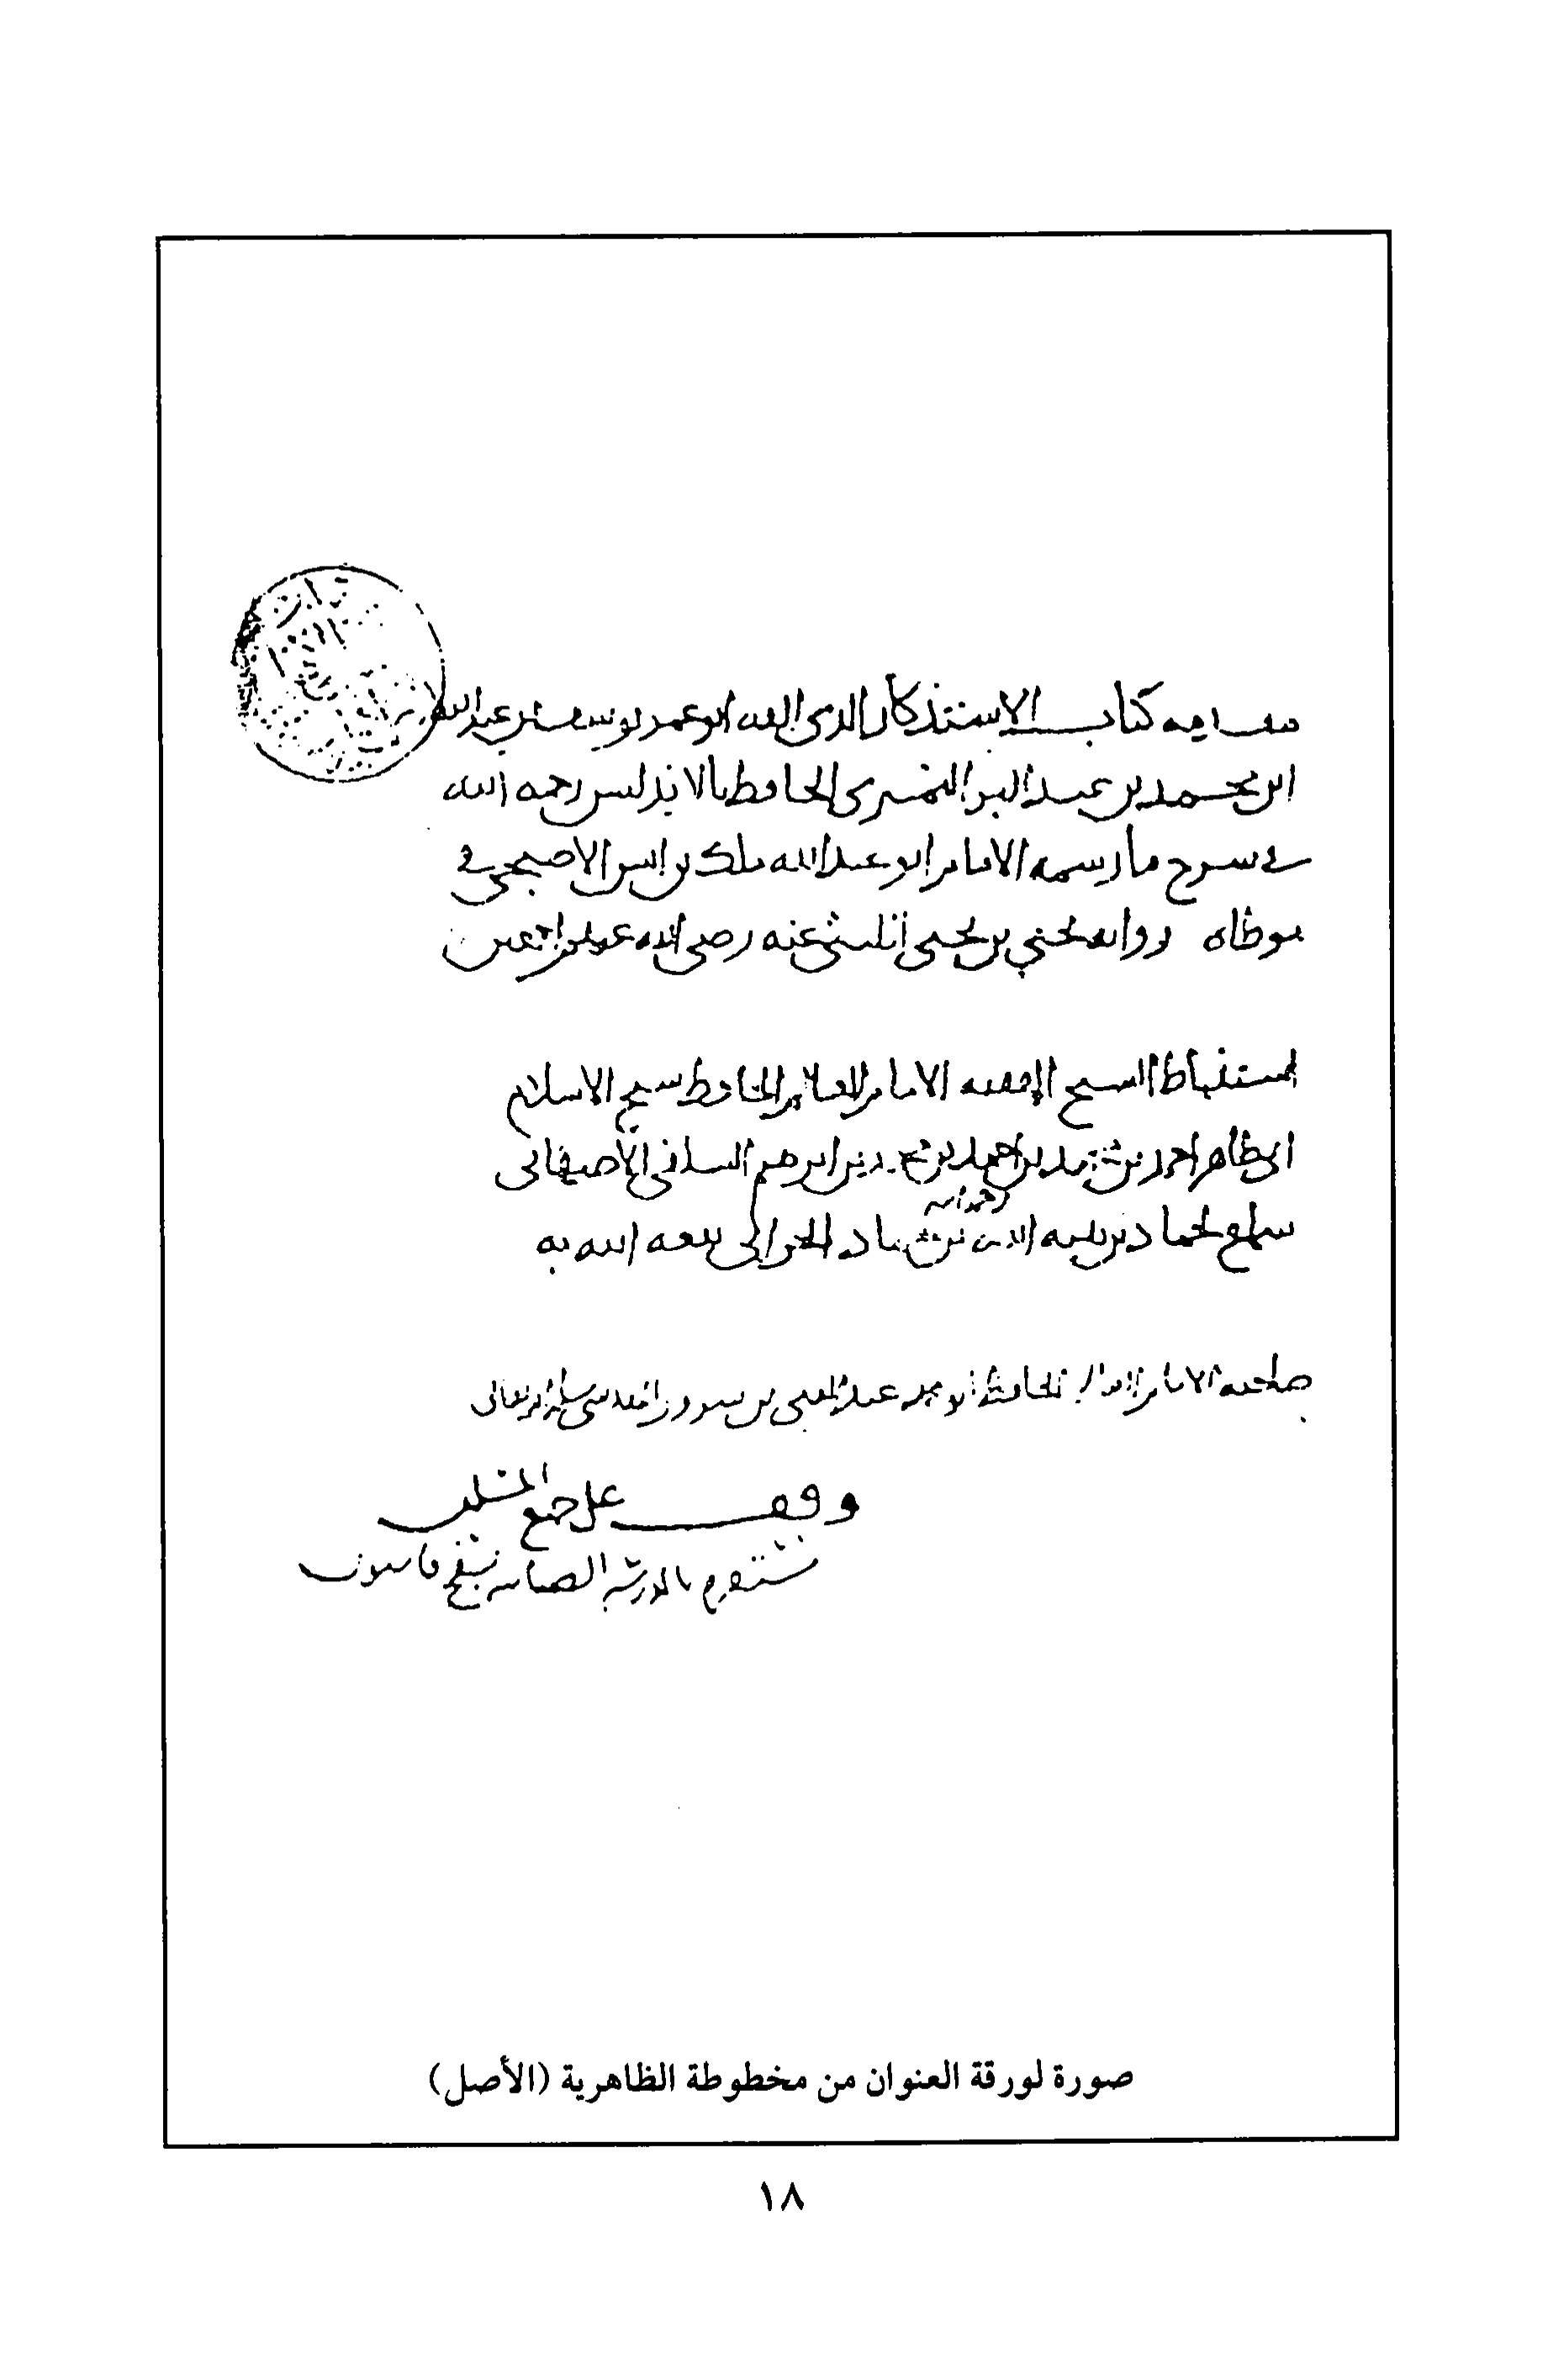 مقدمه كتاب الاستذكار الذى الفه ابو عمر يوسف بن عبد الله
ابن محمد بن عبد البر النمرى الحافظ بالاندلس رحمه الله
فى سرح ما رسمه الامام ابو عبد الله ملك بن انس الاصبحى فى
موطاه روايه يحيى بن يحيى عنه رضى الله عنهم اجمعين
استنباط الشيخ الفقيه الامام العالم الحافظ شيخ الاسلام
ابى طاهر احمد بن محمد بن احمد بن محمد بن ابرهيم السلفى الاصبهانى
رحمه الله
سماع لحماد بن هبه الله بن حماد الحرانى نفعه الله به
صاحبه الامام العالم الحافظ ابو محمد عبد الغنى بن سرور المقدسى تعالى
وقف على جميع المسلمين
مستقره بالمدرسه الضيائيه بسفح قاسيون
صورة لورقة العنوان من مخطوطة الظاهرية (الأصل)
١٨